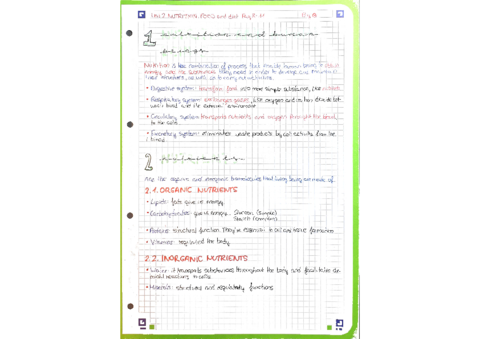 Unit 2 NUTRITION, FOOD and diet Pag 8-
1 Nutrition and human beings
NUTRITION is the combination of process that provide human beings to obtain
energy and the substances they need in order to develop and maintain
their structures, as well as to carry out
• Digestive system: transform food into more simple substances, like nutrients
• Respiratory system: exchanges gases, like oxygen and carbon dioxide between
blood and the external environment
• Circulatory system: transports nutrients and oxygen through the blood
to the cells
• Excretory system: eliminates waste products by cell activity from the
blood.
2 Nutrients
Are the organic and inorganic biomolecules that living beings are made of.
2.1. ORGANIC NUTRIENTS
• Lipids: fats give us energy
• Carbohydrates: give us energy. Glucose (simple)
Starch (complex)
• Proteins: structural function. They're essential to cell and tissue formation
• Vitamins: regulated the body
2.2. INORGANIC NUTRIENTS
• Water: it transports substances throughout the body and facilitates
reactions
• Minerals: structural and regulatory functions